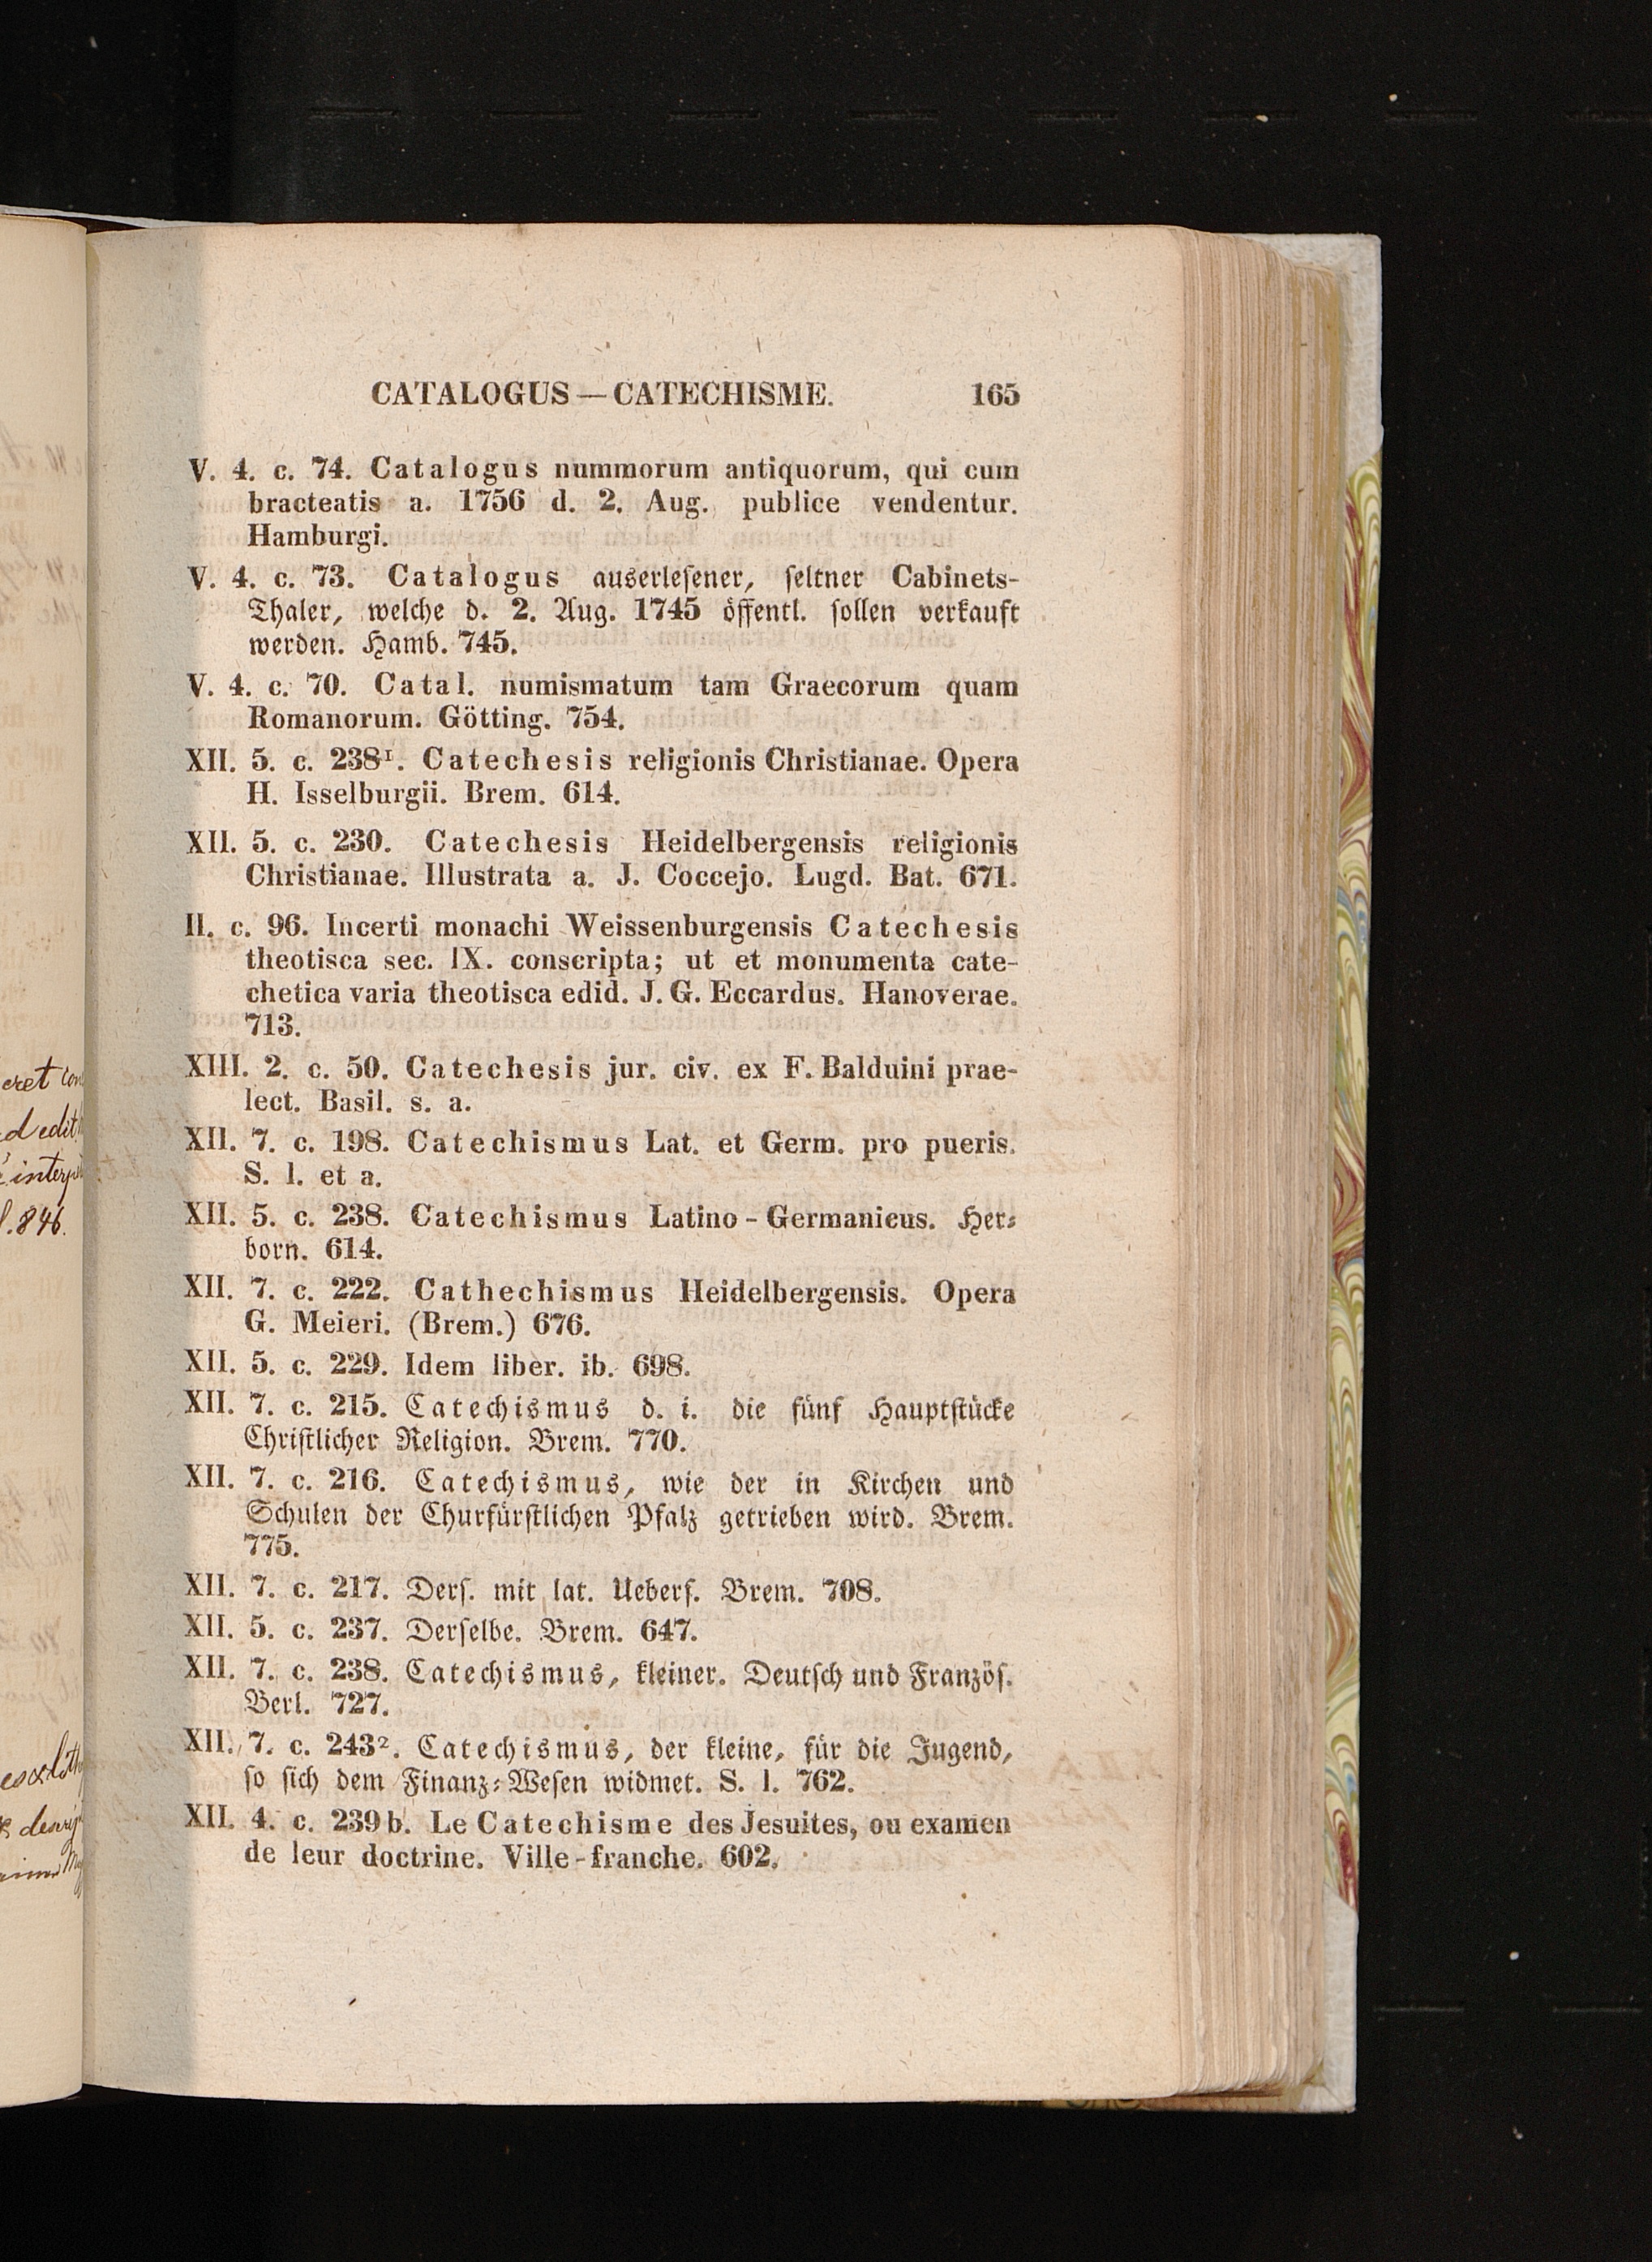 CATALOGUS — CATECHISME. 165
V. 4. c. 74. Catalogus nummorum antiquorum, qui cum
bracteatis a. 1756 d. 2. Aug. publice vendentur.
Hamburgi.
V. 4. c. 73. Catalogus auserleſener, ſeltner Cabinets-
Thaler, welche d. 2. Aug. 1745 öffentl. ſollen verkauft
werden. Hamb. 745.
V. 4. c. 70. Catal. numismatum tam Graecorum quam
Romanorum. Götting. 754.
XII. 5. c. 238¹. Catechesis religionis Christianae. Opera
H. Isselburgii. Brem. 614.
XII. 5. c. 230. Catechesis Heidelbergensis religionis
Christianae. Illustrata a. J. Coccejo. Lugd. Bat. 671.
II. c. 96. Incerti monachi Weissenburgensis Catechesis
theotisca sec. IX. conscripta; ut et monumenta cate-
chetica varia theotisca edid. J. G. Eccardus. Hanoverae.
713.
XIII. 2. c. 50. Catechesis jur. civ. ex F. Balduini prae-
lect. Basil. s. a.
XII. 7. c. 198. Catechismus Lat. et Germ. pro pueris.
S. l. et a.
XII. 5. c. 238. Catechismus Latino-Germanicus. Her-
born. 614.
XII. 7. c. 222. Cathechismus Heidelbergensis. Opera
G. Meieri. (Brem.) 676.
XII. 5. c. 229. Idem liber. ib. 698.
XII. 7. c. 215. Catechismus d. i. die fünf Hauptſtücke
Chriſtlicher Religion. Brem. 770.
XII. 7. c. 216. Catechismus, wie der in Kirchen und
Schulen der Churfürſtlichen Pfalz getrieben wird. Brem.
775.
XII. 7. c. 217. Derſ. mit lat. Ueberſ. Brem. 708.
XII. 5. c. 237. Derſelbe. Brem. 647.
XII. 7. c. 238. Catechismus, kleiner. Deutſch und Französ.
Berl. 727.
XII. 7. c. 243². Catechismus, der kleine, für die Jugend,
ſo ſich dem Finanz-Weſen widmet. S. l. 762.
XII. 4. c. 239b. Le Catechisme des Jesuites, ou examen
de leur doctrine. Ville-franche. 602.